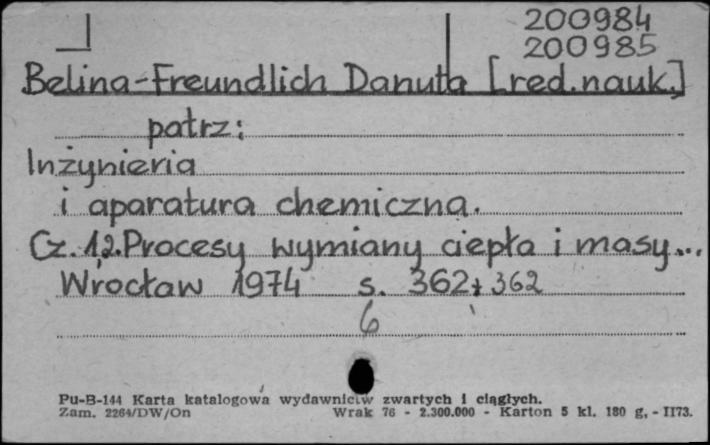 200984
200985
Belina-Freundlich Danuta [red.nauk.]
patrz:
Inżynieria
i aparatura chemiczna.
Cz. 1,2. Procesy wymiany ciepła i masy...
Wrocław 1974 s. 362+362
6
Pu-B-144 Karta katalogowa wydawnictw zwartych i ciągłych.
Zam. 2264/DW/On Wrak 76 - 2.300.000 - Karton 5 kl. 180 g, - II73.